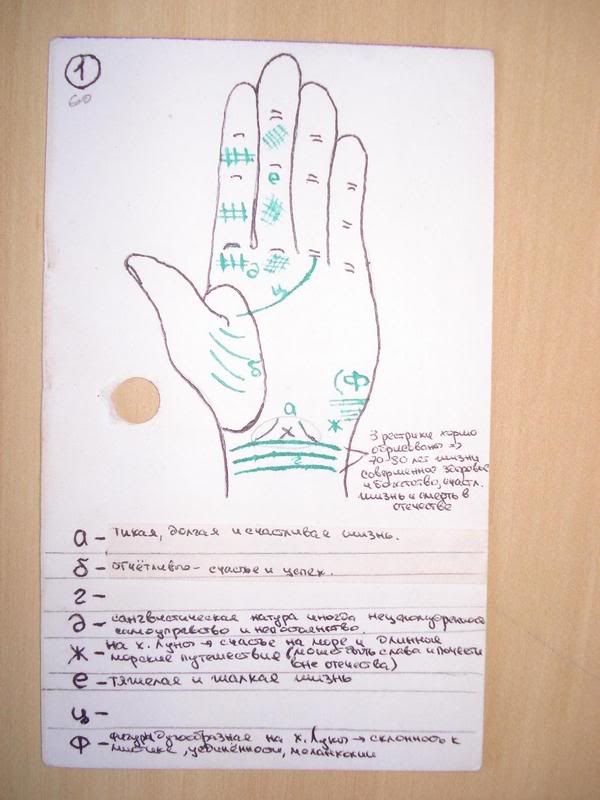 1
е
д
ц
б
ф
а
ж
г
3 рестрики хорошо
обрисованы =>
70-80 лет жизни
совершенное здоровье
и богатство, счастл.
жизнь и смерть в
отечестве
а – тихая, долгая и счастливая жизнь.
б – отчётливо – счастье и успех.
г –
д – сангвистическая натура иногда
самоуправство и непостоянство.
ж – на х. Луны → счастье на море и длинные
морские путешествия (может быть слава и почести
вне отечества)
е – тяжелая и жалкая жизнь
ц –
ф – фигура дугообразная на х. Луны → склонность к
мистике, уединённости, меланхолии